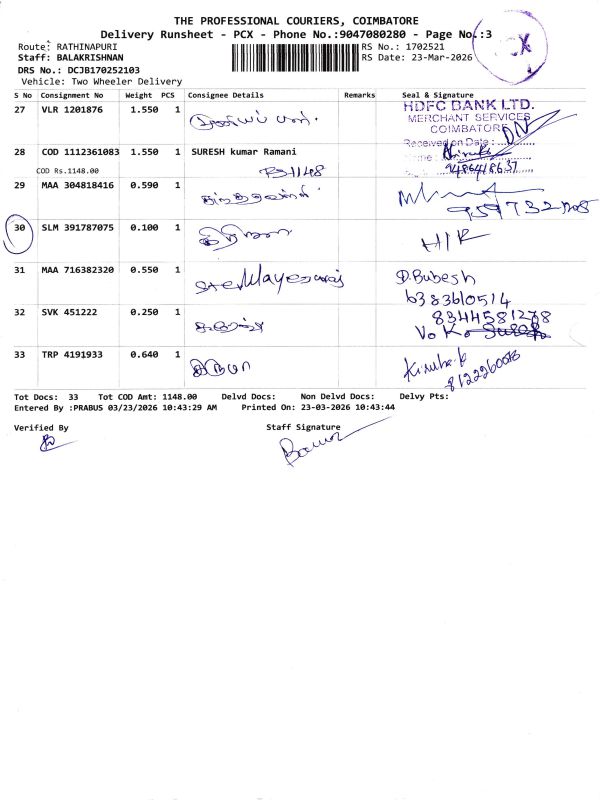 THE PROFESSIONAL COURIERS, COIMBATORE
Delivery Runsheet - PCX - Phone No.:9047080280 - Page No.:3
Route: RATHINAPURI
RS No.: 1702521
Staff: BALAKRISHNAN
RS Date: 23-Mar-2026
DRS No.: DCJB170252103
Vehicle: Two Wheeler Delivery
CX
S No Consignment No Weight PCS Consignee Details Remarks Seal & Signature
27 VLR 1201876 1.550 1
HDFC BANK LTD.
MERCHANT SERVICES
COIMBATORE
Received on Date :
DN
28 COD 1112361083 1.550 1 SURESH kumar Ramani
COD Rs.1148.00
9486418637
29 MAA 304818416 0.590 1
30 SLM 391787075 0.100 1
H/R
31 MAA 716382320 0.550 1
D.Bubesh
6383610514
32 SVK 451222 0.250 1
8344581278
33 TRP 4191933 0.640 1
8122260078
Tot Docs: 33 Tot COD Amt: 1148.00 Delvd Docs: Non Delvd Docs: Delvy Pts:
Entered By :PRABUS 03/23/2026 10:43:29 AM Printed On: 23-03-2026 10:43:44
Verified By Staff Signature